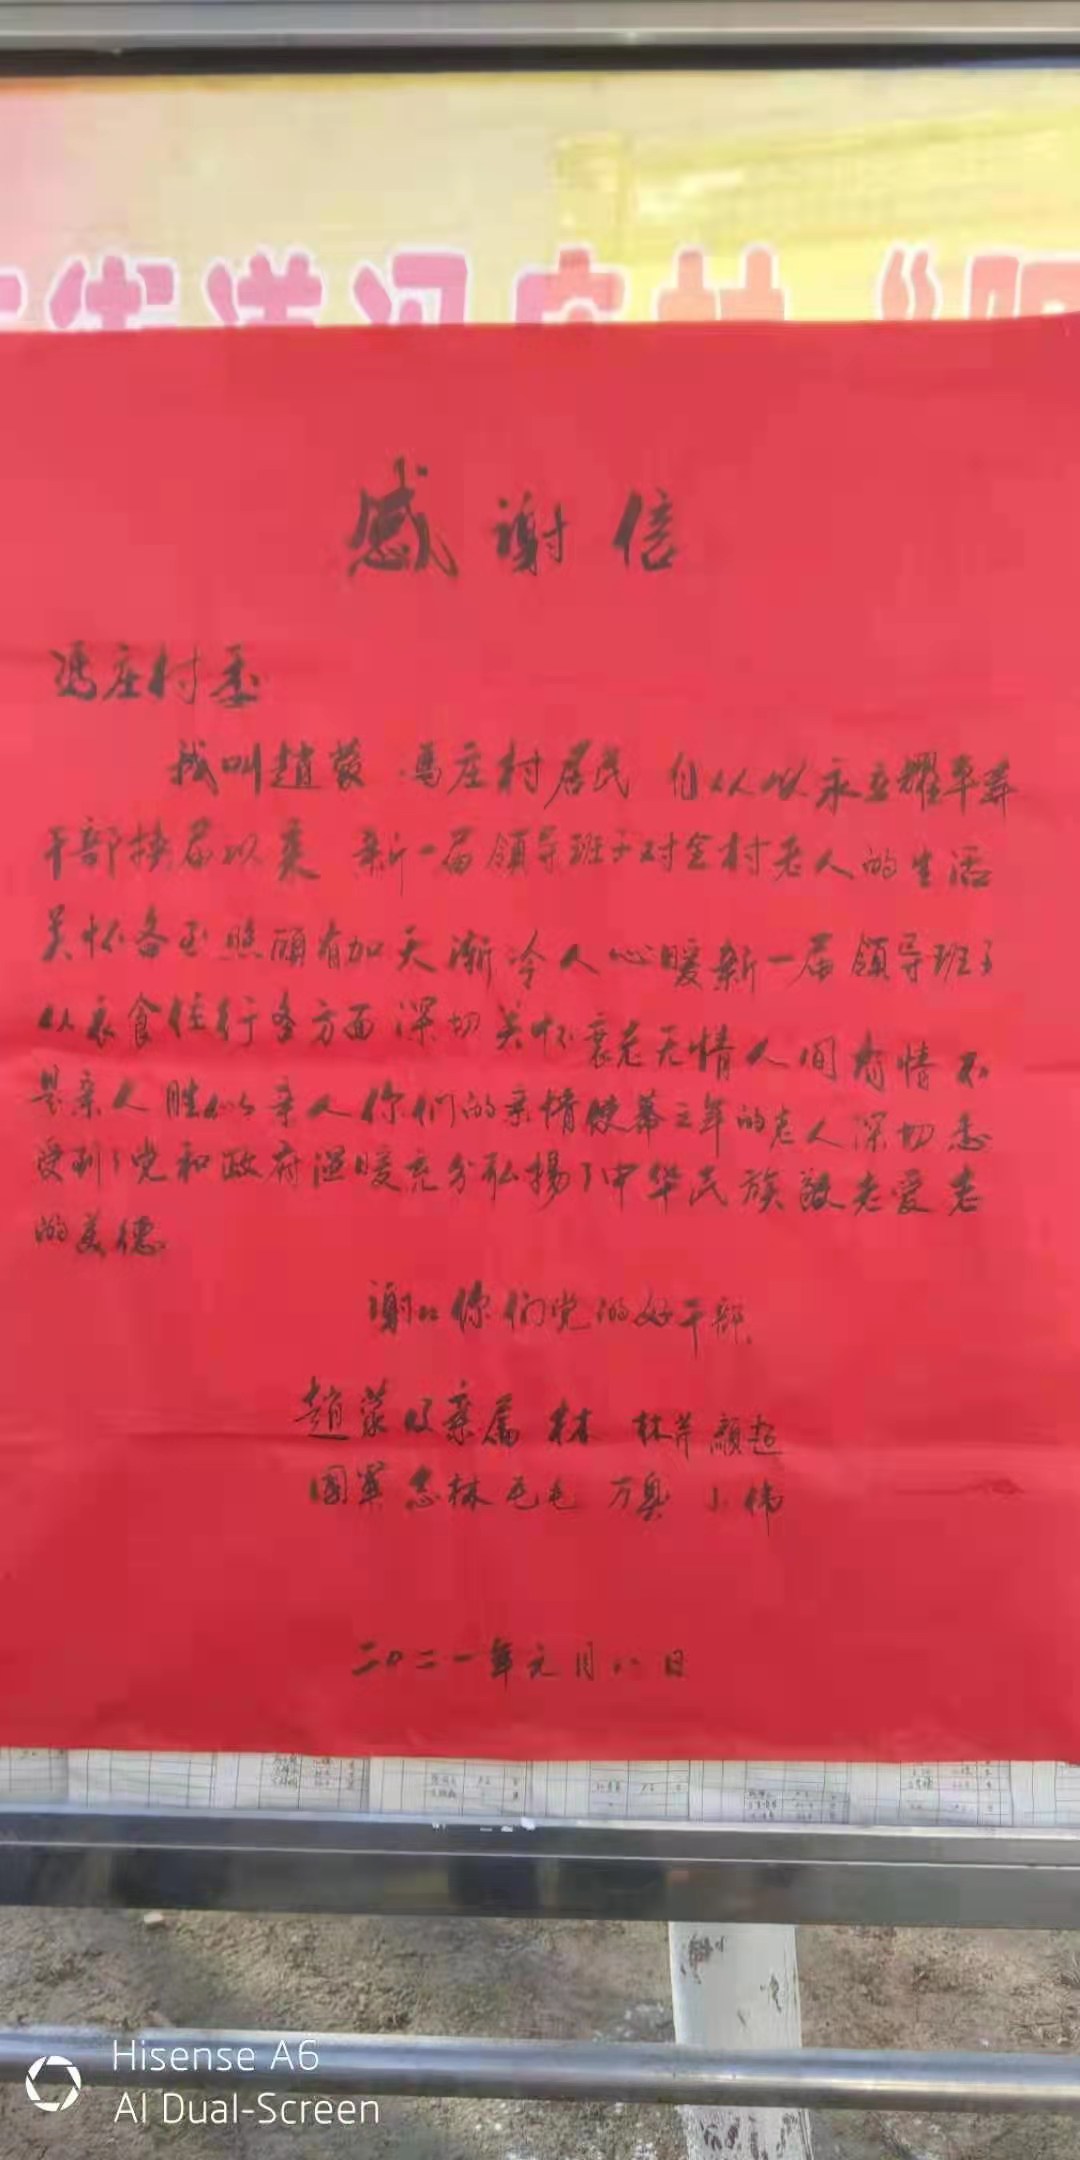 街道冯庄村 "阳
感谢信
冯庄村委
我叫趙蒙 冯庄村居民 自从以永立耀平等
干部换届以来 新一届領导班子对全村老人的生活
关怀各至照顾有加天渐冷人心暖新一届領导班子
从衣食住行各方面深切关怀衰老无情人间有情不
是亲人胜似亲人你们的亲情使暮之年的老人深切感
受到了党和政府温暖充分弘揚了中华民族敬老爱老
的美德
谢〻你们党的好干部
趙蒙及亲属 林 林芹 顧超
國軍 志林 毛毛 万奥 小伟
二〇二一年元月八日
Hisense A6
AI Dual-Screen